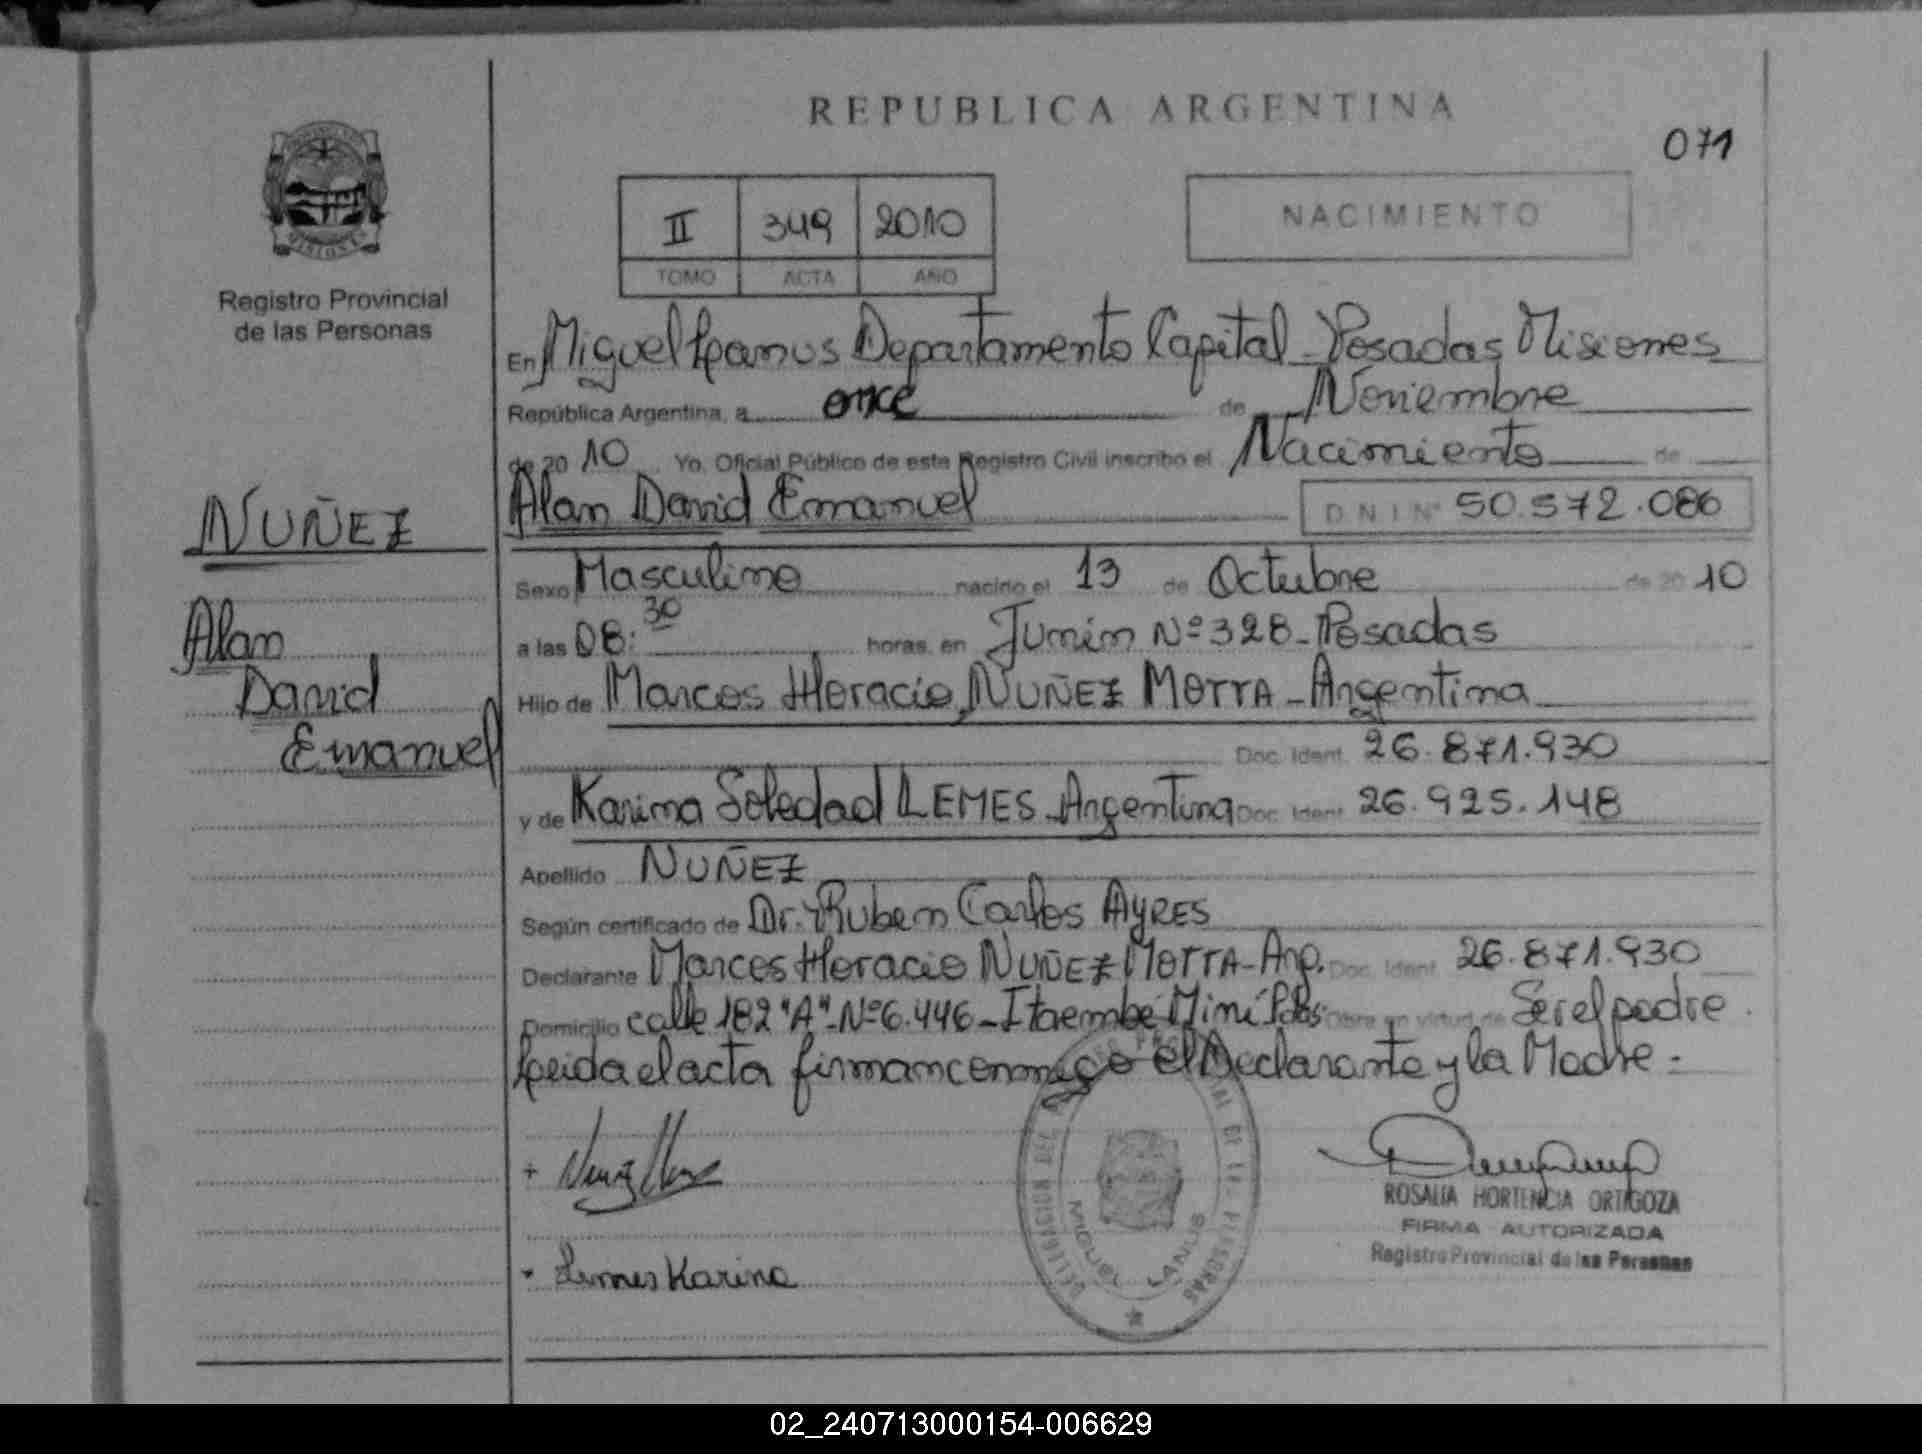 REPUBLICA ARGENTINA
071
II 349 2010
TOMO ACTA AÑO
NACIMIENTO
MISIONES
Registro Provincial
de las Personas
En Miguel Lanus Departamento Capital - Posadas Misiones
República Argentina, a once de Noviembre
de 20 10 Yo, Oficial Público de este Registro Civil inscribo el Nacimiento de
NUÑEZ
Alan
David
Emanuel
Alan David Emanuel D N I Nº 50.572.086
Sexo Masculino nacido el 13 de Octubre de 20 10
a las 08:30 horas, en Junin Nº 328 - Posadas
Hijo de Marcos Horacio NUÑEZ MOTTA - Argentina
Doc. Ident. 26.871.930
y de Karina Soledad LEMES - Argentina Doc. Ident. 26.925.148
Apellido NUÑEZ
Según certificado de Dr. Ruben Carlos AYRES
Declarante Marcos Horacio NUÑEZ MOTTA - Arg. Doc. Ident. 26.871.930
Domicilio calle 182 "A" - Nº 6.446 - Itaembé Miní Pdas Obra en virtud de Ser el padre.
Leida el acta firman conmigo el Declarante y la Madre =
DELEGACION DEL REGISTRO PROVINCIAL DE LAS PERSONAS
MIGUEL LANUS
Lemes Karina
ROSALIA HORTENCIA ORTIGOZA
FIRMA AUTORIZADA
Registro Provincial de las Personas
02_240713000154-006629